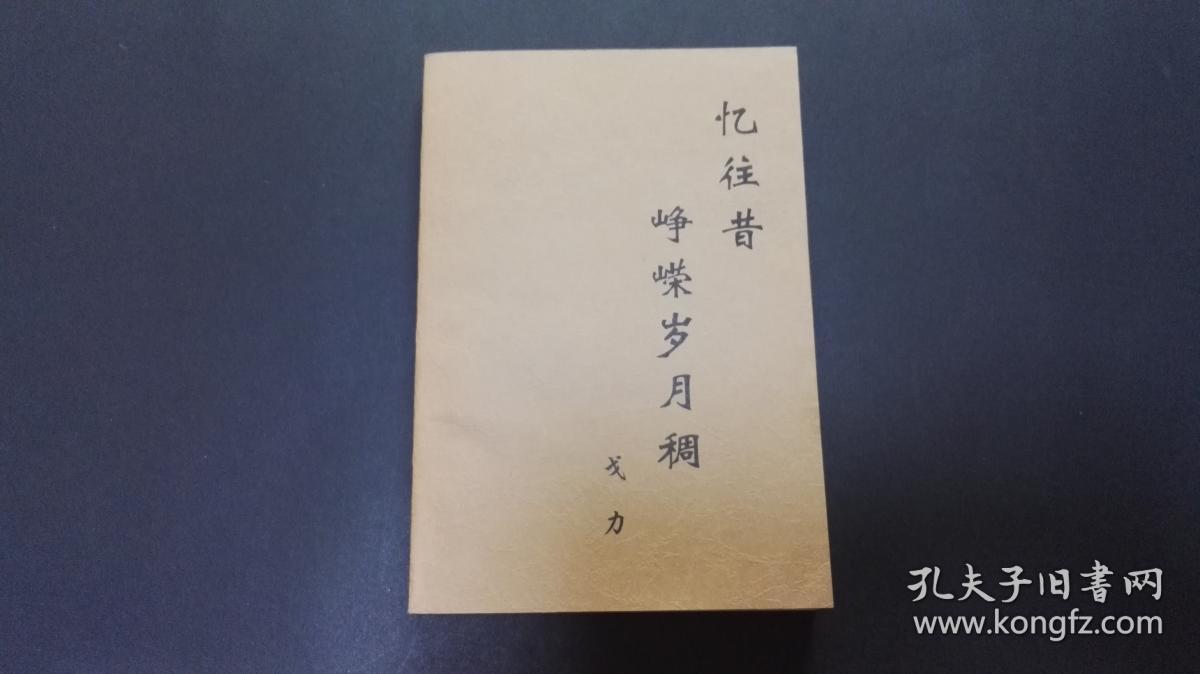 忆往昔
峥嵘岁月稠
戈力
孔夫子旧書网
www.kongfz.com